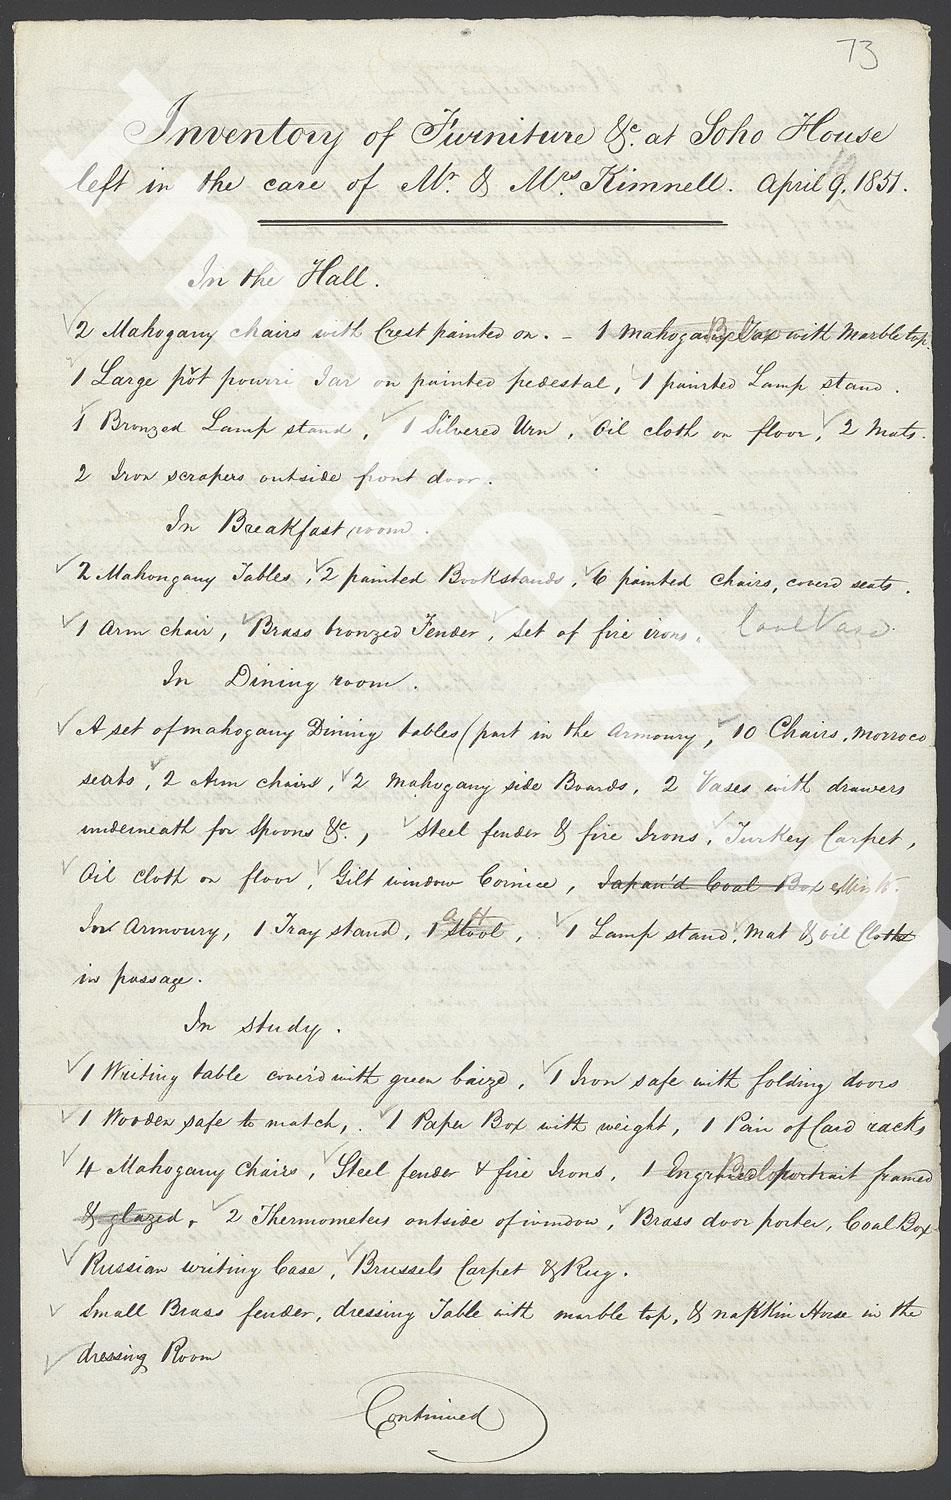 73
Inventory of Furniture &c. at Soho House
left in the care of Mr. & Mrs Kimnell. April 9. 1851.
In the Hall.
2 Mahogany chairs with Crest painted on. - 1 mahogany with Marble top.
1 Large pot pourri Jar on painted pedestal, 1 painted Lamp stand.
1 Bronzed Lamp stand, 1 Silvered Urn, Oil cloth on floor, 2 Mats.
2 Iron scrapers outside front door.
In Breakfast room.
2 Mahongany Tables, 2 painted Bookstands, 6 painted chairs, coverd seats.
1 Arm chair, Brass bronzed Fender, Set of fire irons. Coal Vase
In Dining room.
A set of mahogany Dining tables (part in the Armoury, 10 Chairs, morroco
seats, 2 Arm chairs, 2 Mahogany side Boards, 2 Vases with drawers
underneath for Spoons &c., Steel fender & fire Irons, Turkey Carpet,
Oil cloth on floor, Gilt window Cornice, Japan'd Coal Box
In Armoury, 1 Tray stand, 1 Stool, 1 Lamp stand, Mat & oil Cloth
in passage.
In study.
1 Writing table cover'd with green baize, 1 Iron safe with folding doors
1 Wooden safe to match, 1 Paper Box with weight, 1 Pair of Card racks
4 Mahogany Chairs, Steel fender & fire Irons, 1 Engraved portrait framed
& glazed, 2 Thermometers outside of window, Brass door porter, Coal Box
Russian writing Case, Brussels Carpet & Rug.
Small Brass fender, dressing Table with marble top, & napkin Horse in the
dressing Room
Continued
Image Not